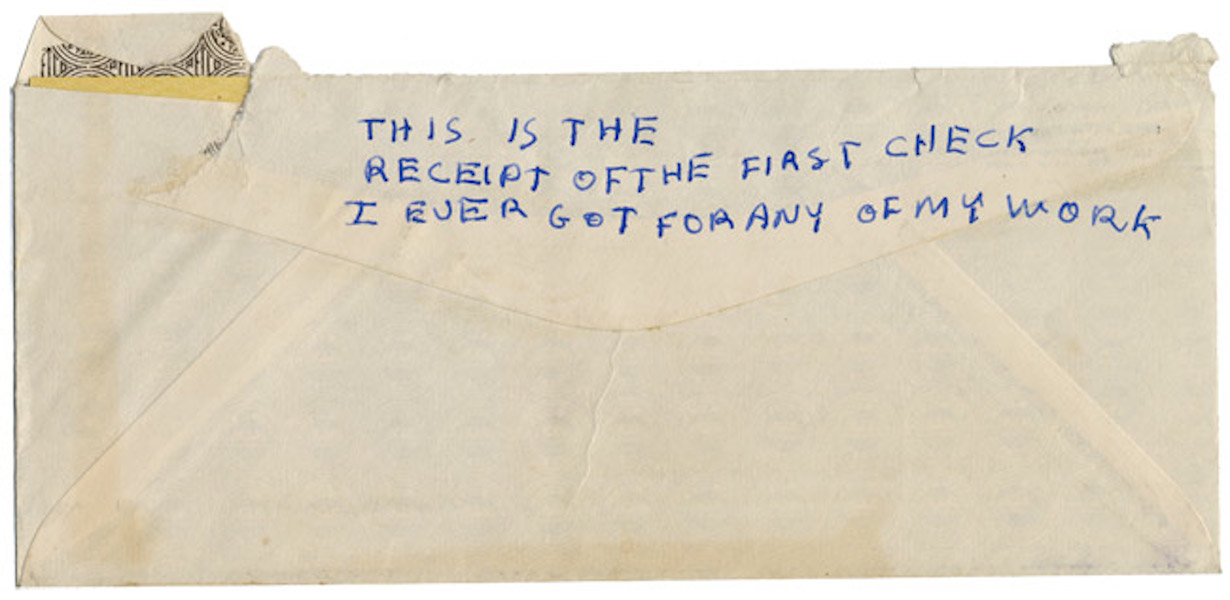 THIS IS THE
RECEIPT OF THE FIRST CHECK
I EVER GOT FOR ANY OF MY WORK